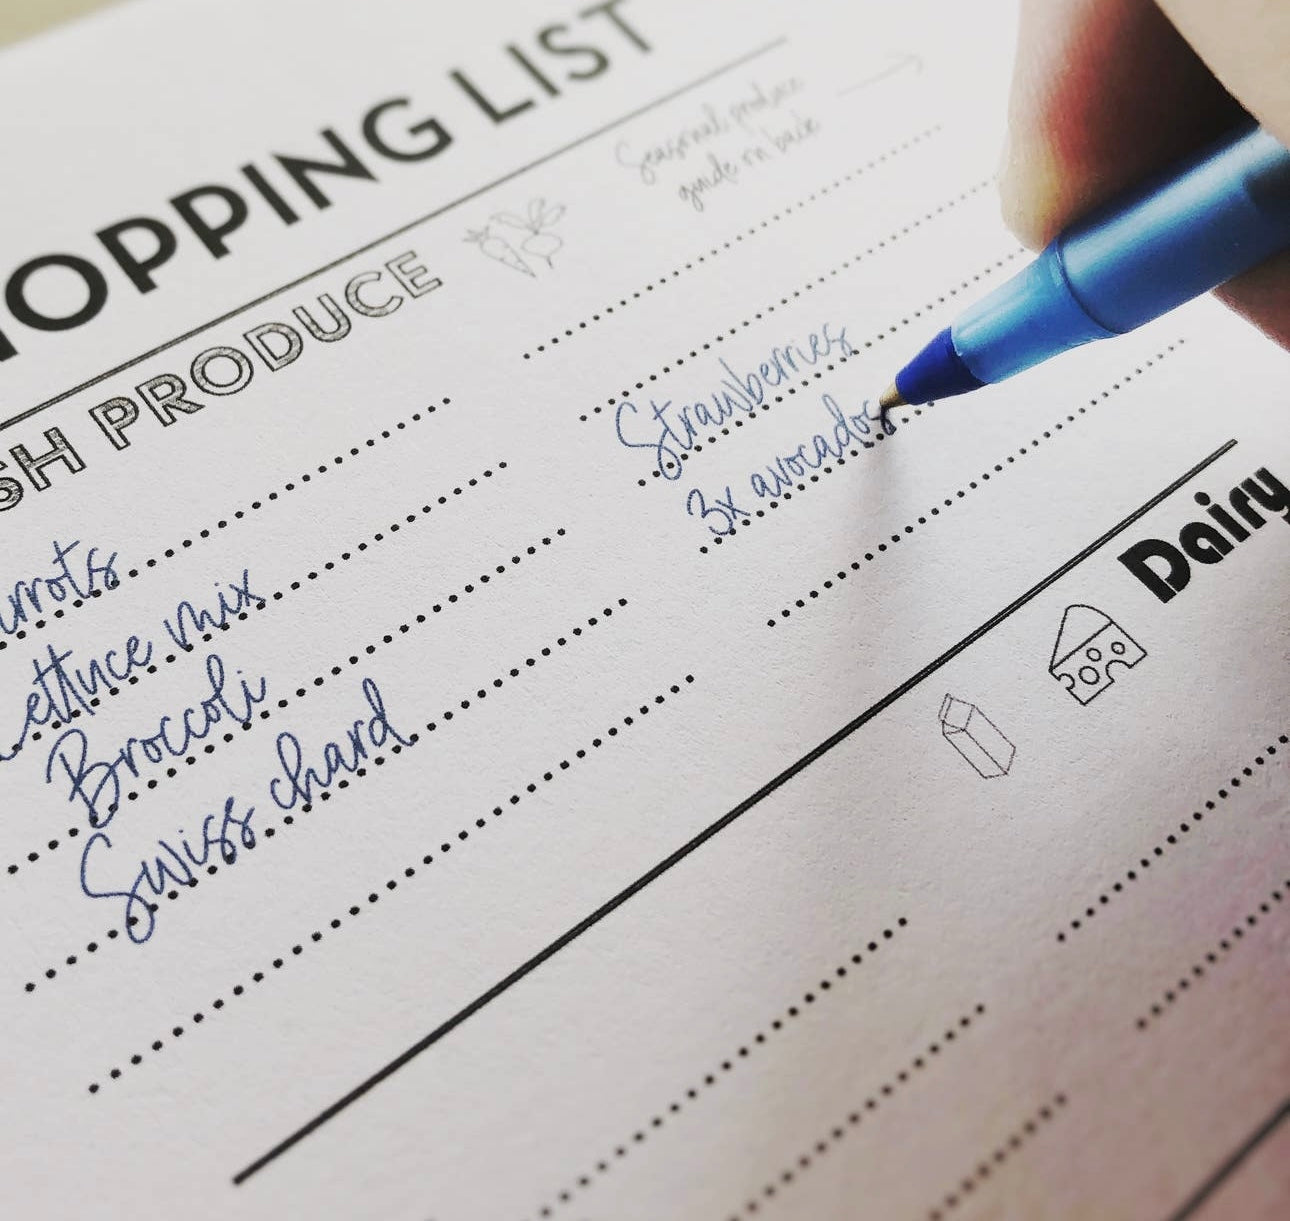 HOPPING LIST
SH PRODUCE
Seasonal produce
guide on back
arrots
Lettuce mix
Broccoli
Swiss chard
Strawberries
3x avocados
Dairy